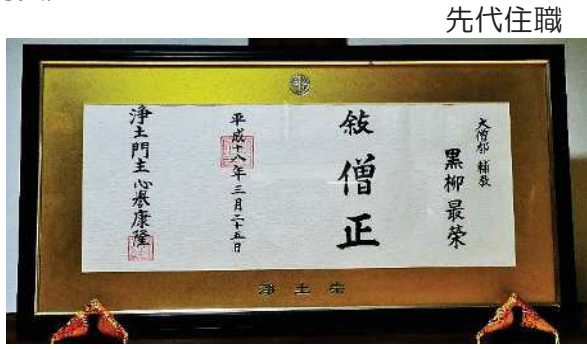 先代住職
大僧都 輔教
黒柳最栄
敍僧正
平成十八年三月二十五日
浄土門主心誉康隆
浄土宗